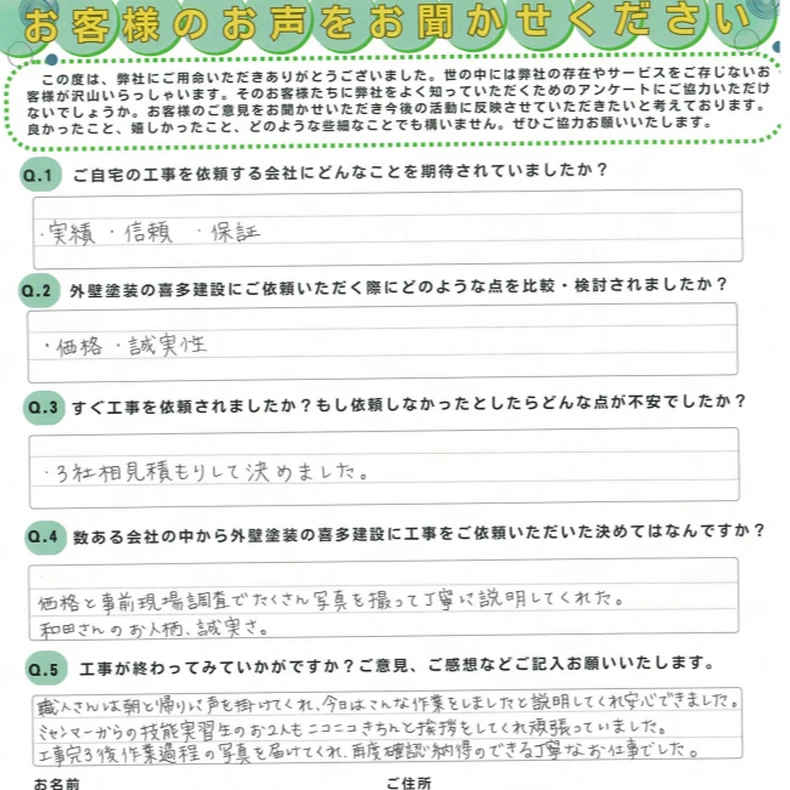 お客様のお声をお聞かせください
この度は、弊社にご用命いただきありがとうございました。世の中には弊社の存在やサービスをご存じないお
客様が沢山いらっしゃいます。そのお客様たちに弊社をよく知っていただくためのアンケートにご協力いただけ
ないでしょうか。お客様のご意見をお聞かせいただき今後の活動に反映させていただきたいと考えております。
良かったこと、嬉しかったこと、どのような些細なことでも構いません。ぜひご協力お願いいたします。
Q.1 ご自宅の工事を依頼する会社にどんなことを期待されていましたか？
・実績 ・信頼 ・保証
Q.2 外壁塗装の喜多建設にご依頼いただく際にどのような点を比較・検討されましたか？
・価格 ・誠実性
Q.3 すぐ工事を依頼されましたか？もし依頼しなかったとしたらどんな点が不安でしたか？
・3社相見積もりして決めました。
Q.4 数ある会社の中から外壁塗装の喜多建設に工事をご依頼いただいた決めてはなんですか？
価格と事前現場調査でたくさん写真を撮って丁寧に説明してくれた。
和田さんのお人柄、誠実さ。
Q.5 工事が終わってみていかがですか？ご意見、ご感想などご記入お願いいたします。
職人さんは朝と帰りに声を掛けてくれ、今日はこんな作業をしましたと説明してくれ安心できました。
ミャンマーからの技能実習生のお2人もニコニコきちんと挨拶をしてくれ頑張っていました。
工事完了後作業過程の写真を届けてくれ、再度確認納得のできる丁寧なお仕事でした。
お名前 ご住所